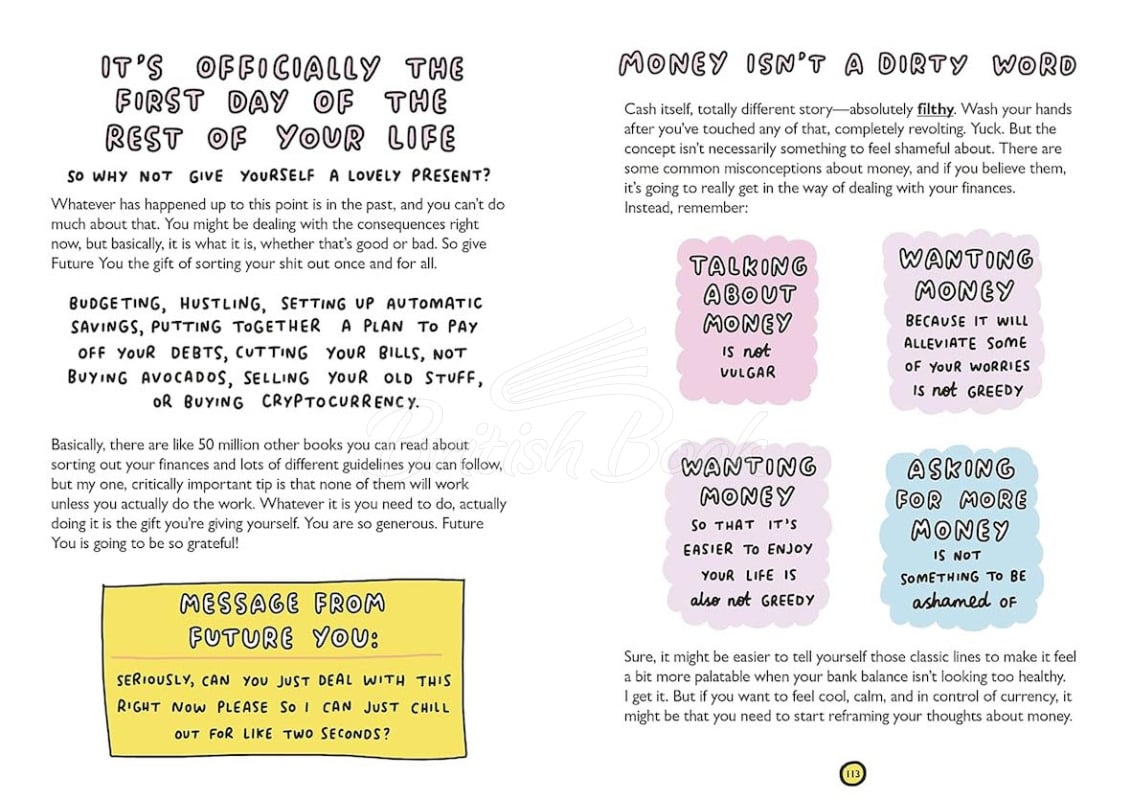 IT'S OFFICIALLY THE
FIRST DAY OF THE
REST OF YOUR LIFE
SO WHY NOT GIVE YOURSELF A LOVELY PRESENT?
Whatever has happened up to this point is in the past, and you can't do
much about that. You might be dealing with the consequences right
now, but basically, it is what it is, whether that's good or bad. So give
Future You the gift of sorting your shit out once and for all.
BUDGETING, HUSTLING, SETTING UP AUTOMATIC
SAVINGS, PUTTING TOGETHER A PLAN TO PAY
OFF YOUR DEBTS, CUTTING YOUR BILLS, NOT
BUYING AVOCADOS, SELLING YOUR OLD STUFF,
OR BUYING CRYPTOCURRENCY.
Basically, there are like 50 million other books you can read about
sorting out your finances and lots of different guidelines you can follow,
but my one, critically important tip is that none of them will work
unless you actually do the work. Whatever it is you need to do, actually
doing it is the gift you're giving yourself. You are so generous. Future
You is going to be so grateful!
MESSAGE FROM
FUTURE YOU:
SERIOUSLY, CAN YOU JUST DEAL WITH THIS
RIGHT NOW PLEASE SO I CAN JUST CHILL
OUT FOR LIKE TWO SECONDS?
MONEY ISN'T A DIRTY WORD
Cash itself, totally different story—absolutely filthy. Wash your hands
after you've touched any of that, completely revolting. Yuck. But the
concept isn't necessarily something to feel shameful about. There are
some common misconceptions about money, and if you believe them,
it's going to really get in the way of dealing with your finances.
Instead, remember:
TALKING
ABOUT
MONEY
IS not
VULGAR
WANTING
MONEY
BECAUSE IT WILL
ALLEVIATE SOME
OF YOUR WORRIES
IS not GREEDY
WANTING
MONEY
SO THAT IT'S
EASIER TO ENJOY
YOUR LIFE IS
also not GREEDY
ASKING
FOR MORE
MONEY
IS NOT
SOMETHING TO BE
ashamed OF
Sure, it might be easier to tell yourself those classic lines to make it feel
a bit more palatable when your bank balance isn't looking too healthy.
I get it. But if you want to feel cool, calm, and in control of currency, it
might be that you need to start reframing your thoughts about money.
113
British Book